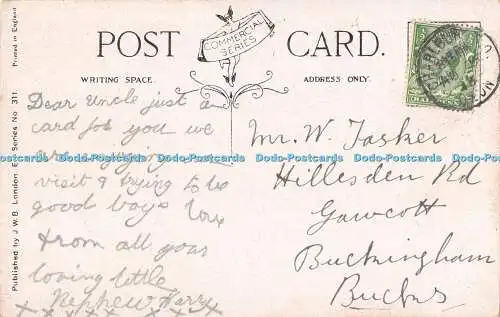 Printed in England
POST CARD.
COMMERCIAL SERIES
WRITING SPACE.
ADDRESS ONLY.
Published by J.W.B. London E. Series No 311
Dear Uncle just a
card for you we
are
visit & trying to be
good boys love
from all your
loving little
Nephew Harry
x x x x x x x x
Mr. W. Tasker
Hillesden Rd
Gawcott
Buckingham
Bucks
Dodo-Postcards Dodo-Postcards Dodo-Postcards Dodo-Postcards Dodo-Postcards